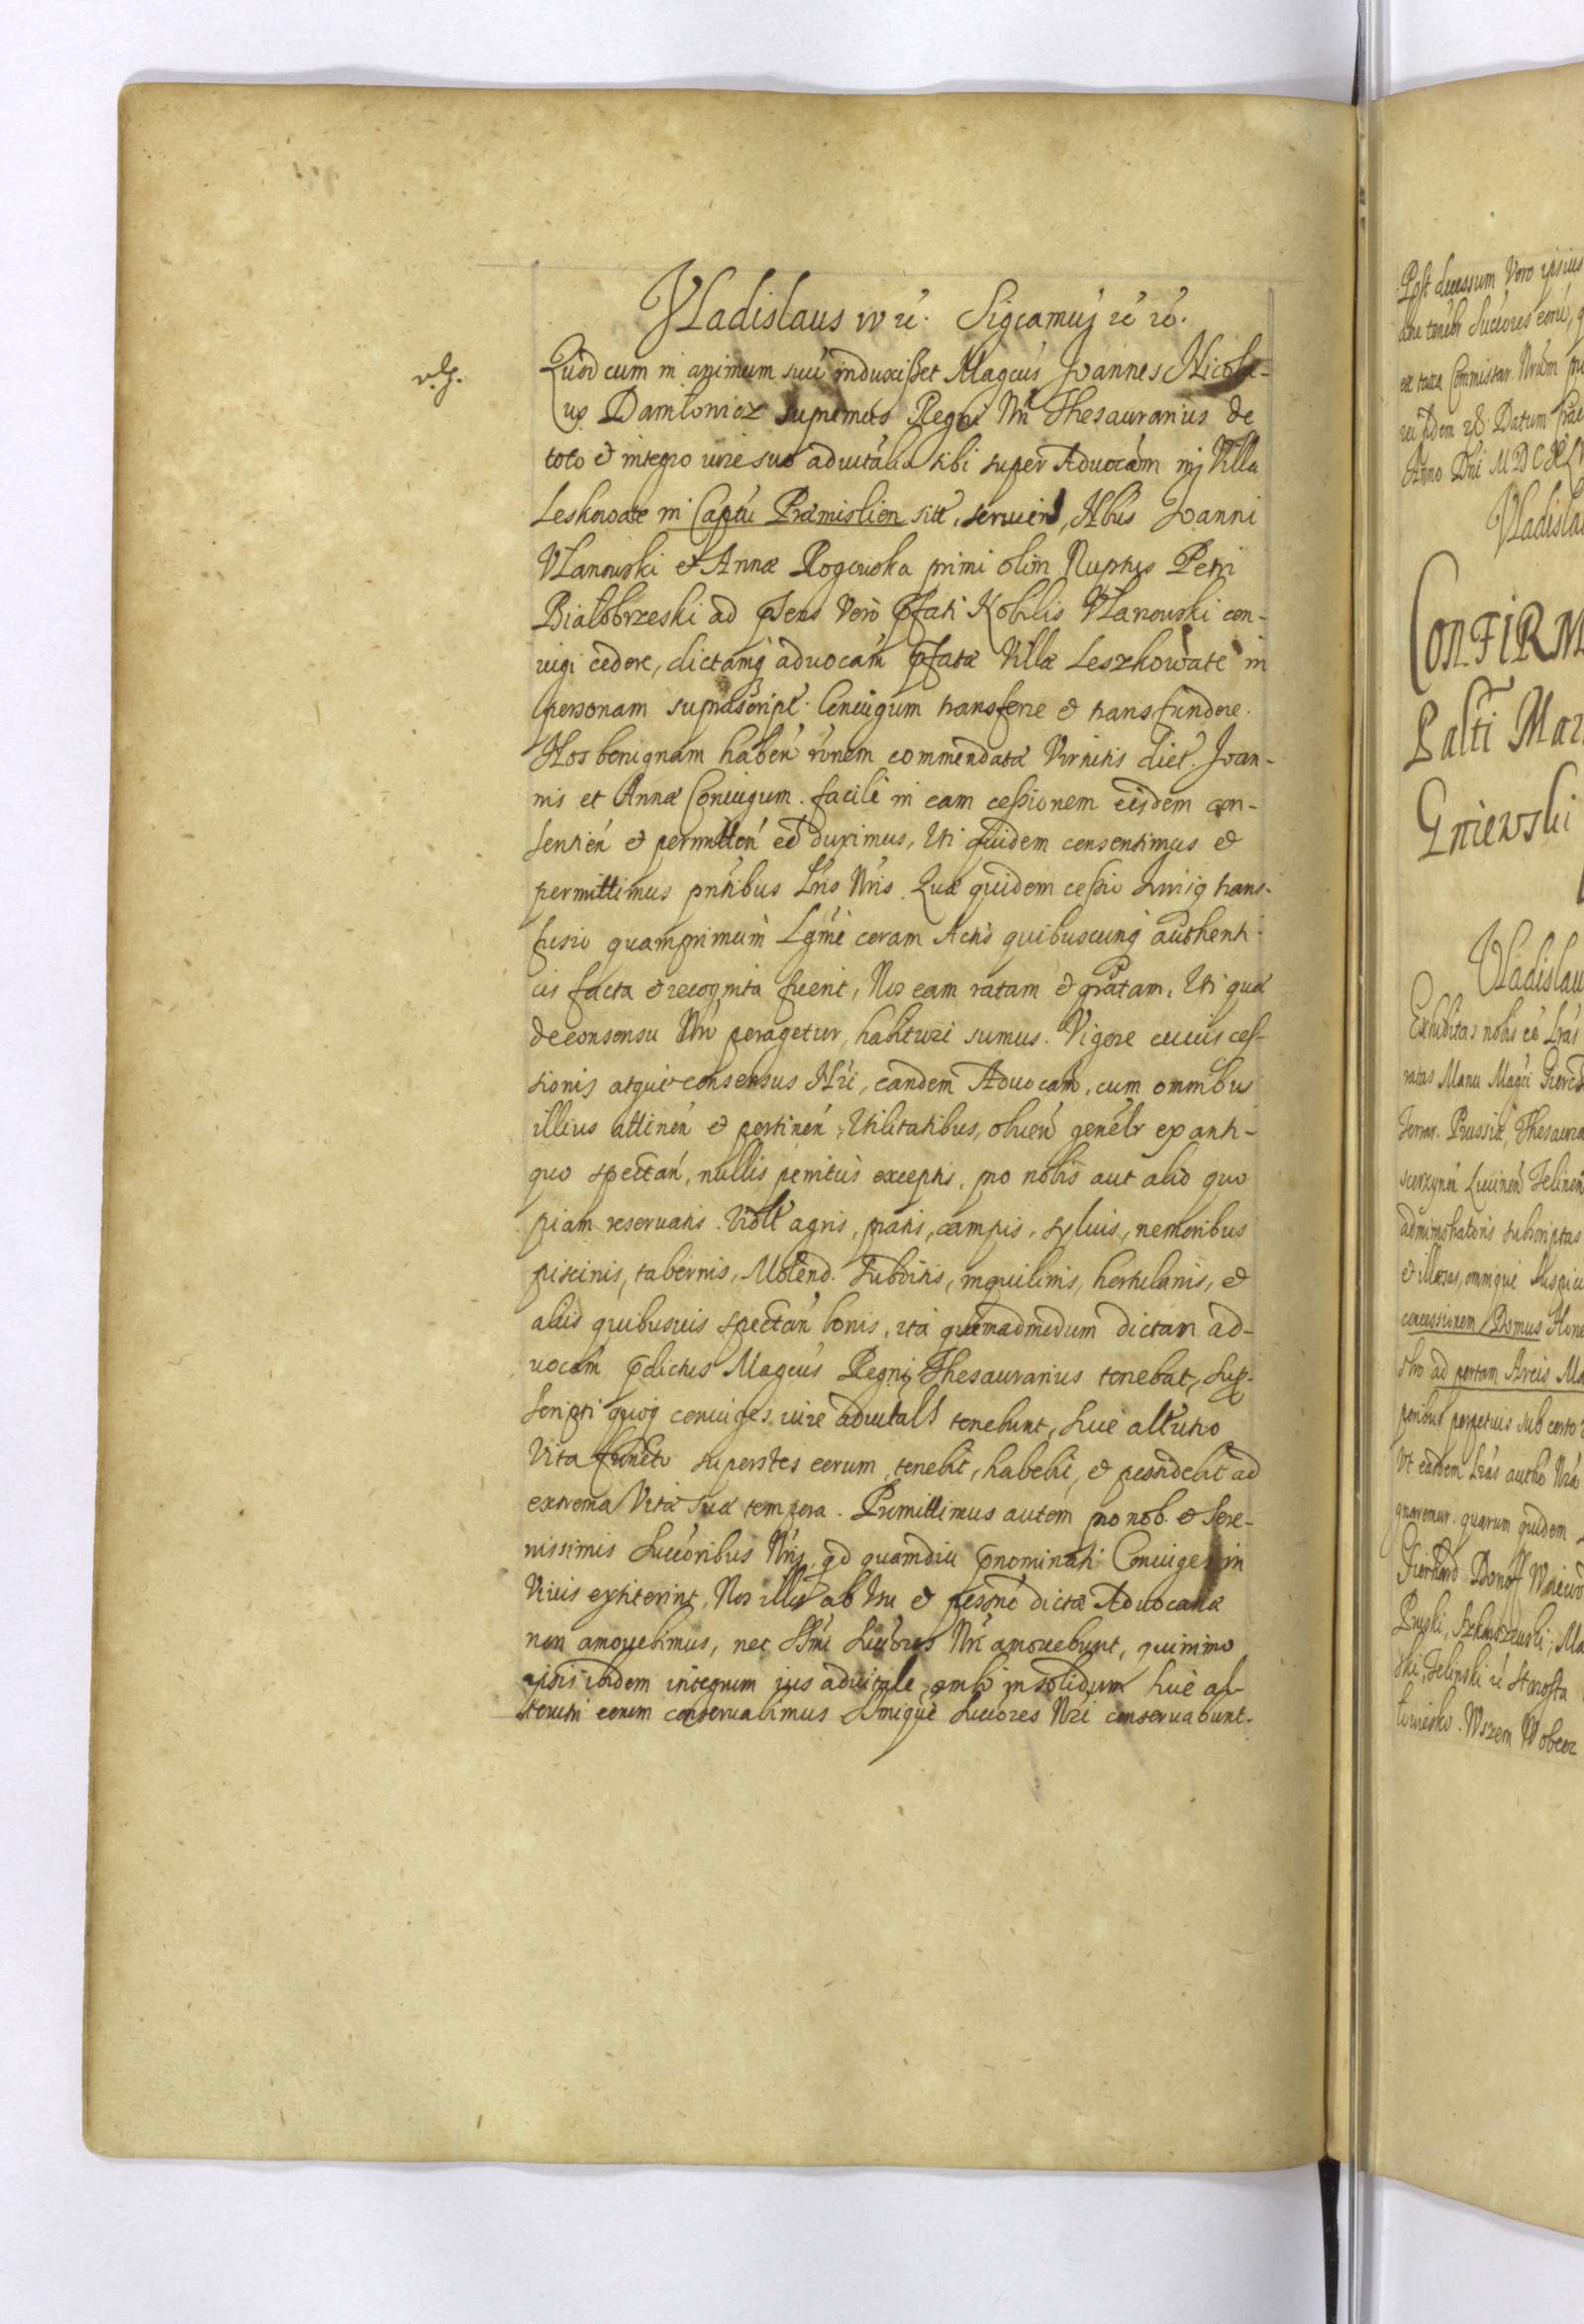 Vladislaus IV rc. Sigcamus rc rc.
Quod cum in animum suũ induxisset Magcus Joannes Nicola-
us Daniłowicz supremus Regni Nri Thesaurarius de
toto et integro iure suo aduitalia sibi super Aduocãm in Villa
Leskowate in Captu Præmislien sitt, seruien, Nbus Joanni
Vlanowski et Annæ Rogowska primi olim Nuptus Petri
Białobrzeski ad psens Vero pfati Nobilis Vlanowski con-
iugi cedere, dictamq aduocam pfatæ Villæ Leszkowate in
personam suprascript. Coniugum transferre et transfundere.
Nos benignam haben rõnem commendatæ Virtutis dict. Joan-
nis et Annæ Coniugum. facile in eam cessionem eisdem con-
sentien et permitten eẽ duximus, Vti quidem consentimus et
permittimus pntibus Lris Nris. Quæ quidem cessio Jurisq trans-
fusio quamprimum Lgme coram Actis quibuscunq authenti-
cis facta et recognita fuerit, Nos eam ratam et gratam, Vti quæ
de consensu Nro peragetur, habituri sumus. Vigore cuius ces-
sionis atque consensus Nri, eandem Aduocam, cum omnibus
illius attinen et pertinen, Vtilitatibus, obuen genelr ex anti-
quo spectan, nullis penitus exceptis, pro nobis aut alio quo
piam reseruatis. Vidlt agris, pratis, campis, syluis, nemoribus
piscinis, tabernis, Molend. Subditis, inquilinis, hortulanis, et
aliis quibusuis spectan bonis, ita quemadmodum dictam ad-
uocam pdictus Magcus Regni Thesaurarius tenebat, Sup-
scripti quoq coniuges iure aduitali tenebunt, siue altero
Vita functo superstes eorum tenebit, habebit, et possidebit ad
extrema Vitæ suæ tempora. Promittimus autem pro nob. et Sere-
nissimis Succoribus Nris, qd quamdiu pnominati Coniuges in
Viuis extiterint, Nos illos ab Vsu et possne dictæ Aduocatiæ
non amouebimus, nec Ssmi Succores Nri amouebunt, quinimo
ipsis ibidem integrum ius aduitale, ambo in solidum siue al-
terutri eorum conseruabimus Ssmique Succores Nri conseruabunt.
Post decessum Vero ipsius
ex taxa Commissar. Nrorm
rei fidem rc. Datum
Anno Dni M D C
Vladisla
CONFIRM
Palti Mar
Gniewski
Vladislau
Exhibitas nobis eẽ Lras
ratas Manu Magci
Terrar. Prussiæ, Thesaura
administratoris subscriptas
et illæsas, omnique suspici
concessionem Domus
stro ad portam Arcis Ma
Vt easdem Lras autho Nra
gnaremur. quarum quidem
Gierhard Dönoff